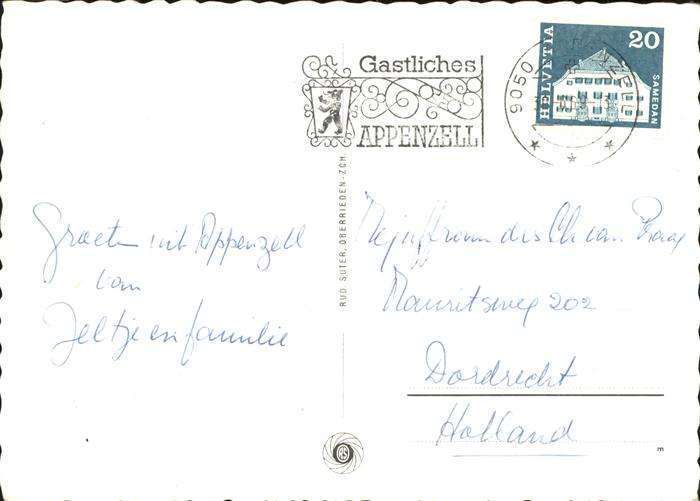 Gastliches
APPENZELL
9050
20
HELVETIA
SAMEDAN
Groeten uit Appenzell
van
Jeltje en familie
RUD. SUTER, OBERRIEDEN-ZCH.
Mejuffrouw
van
Mauritsweg 202
Dordrecht
Holland
m